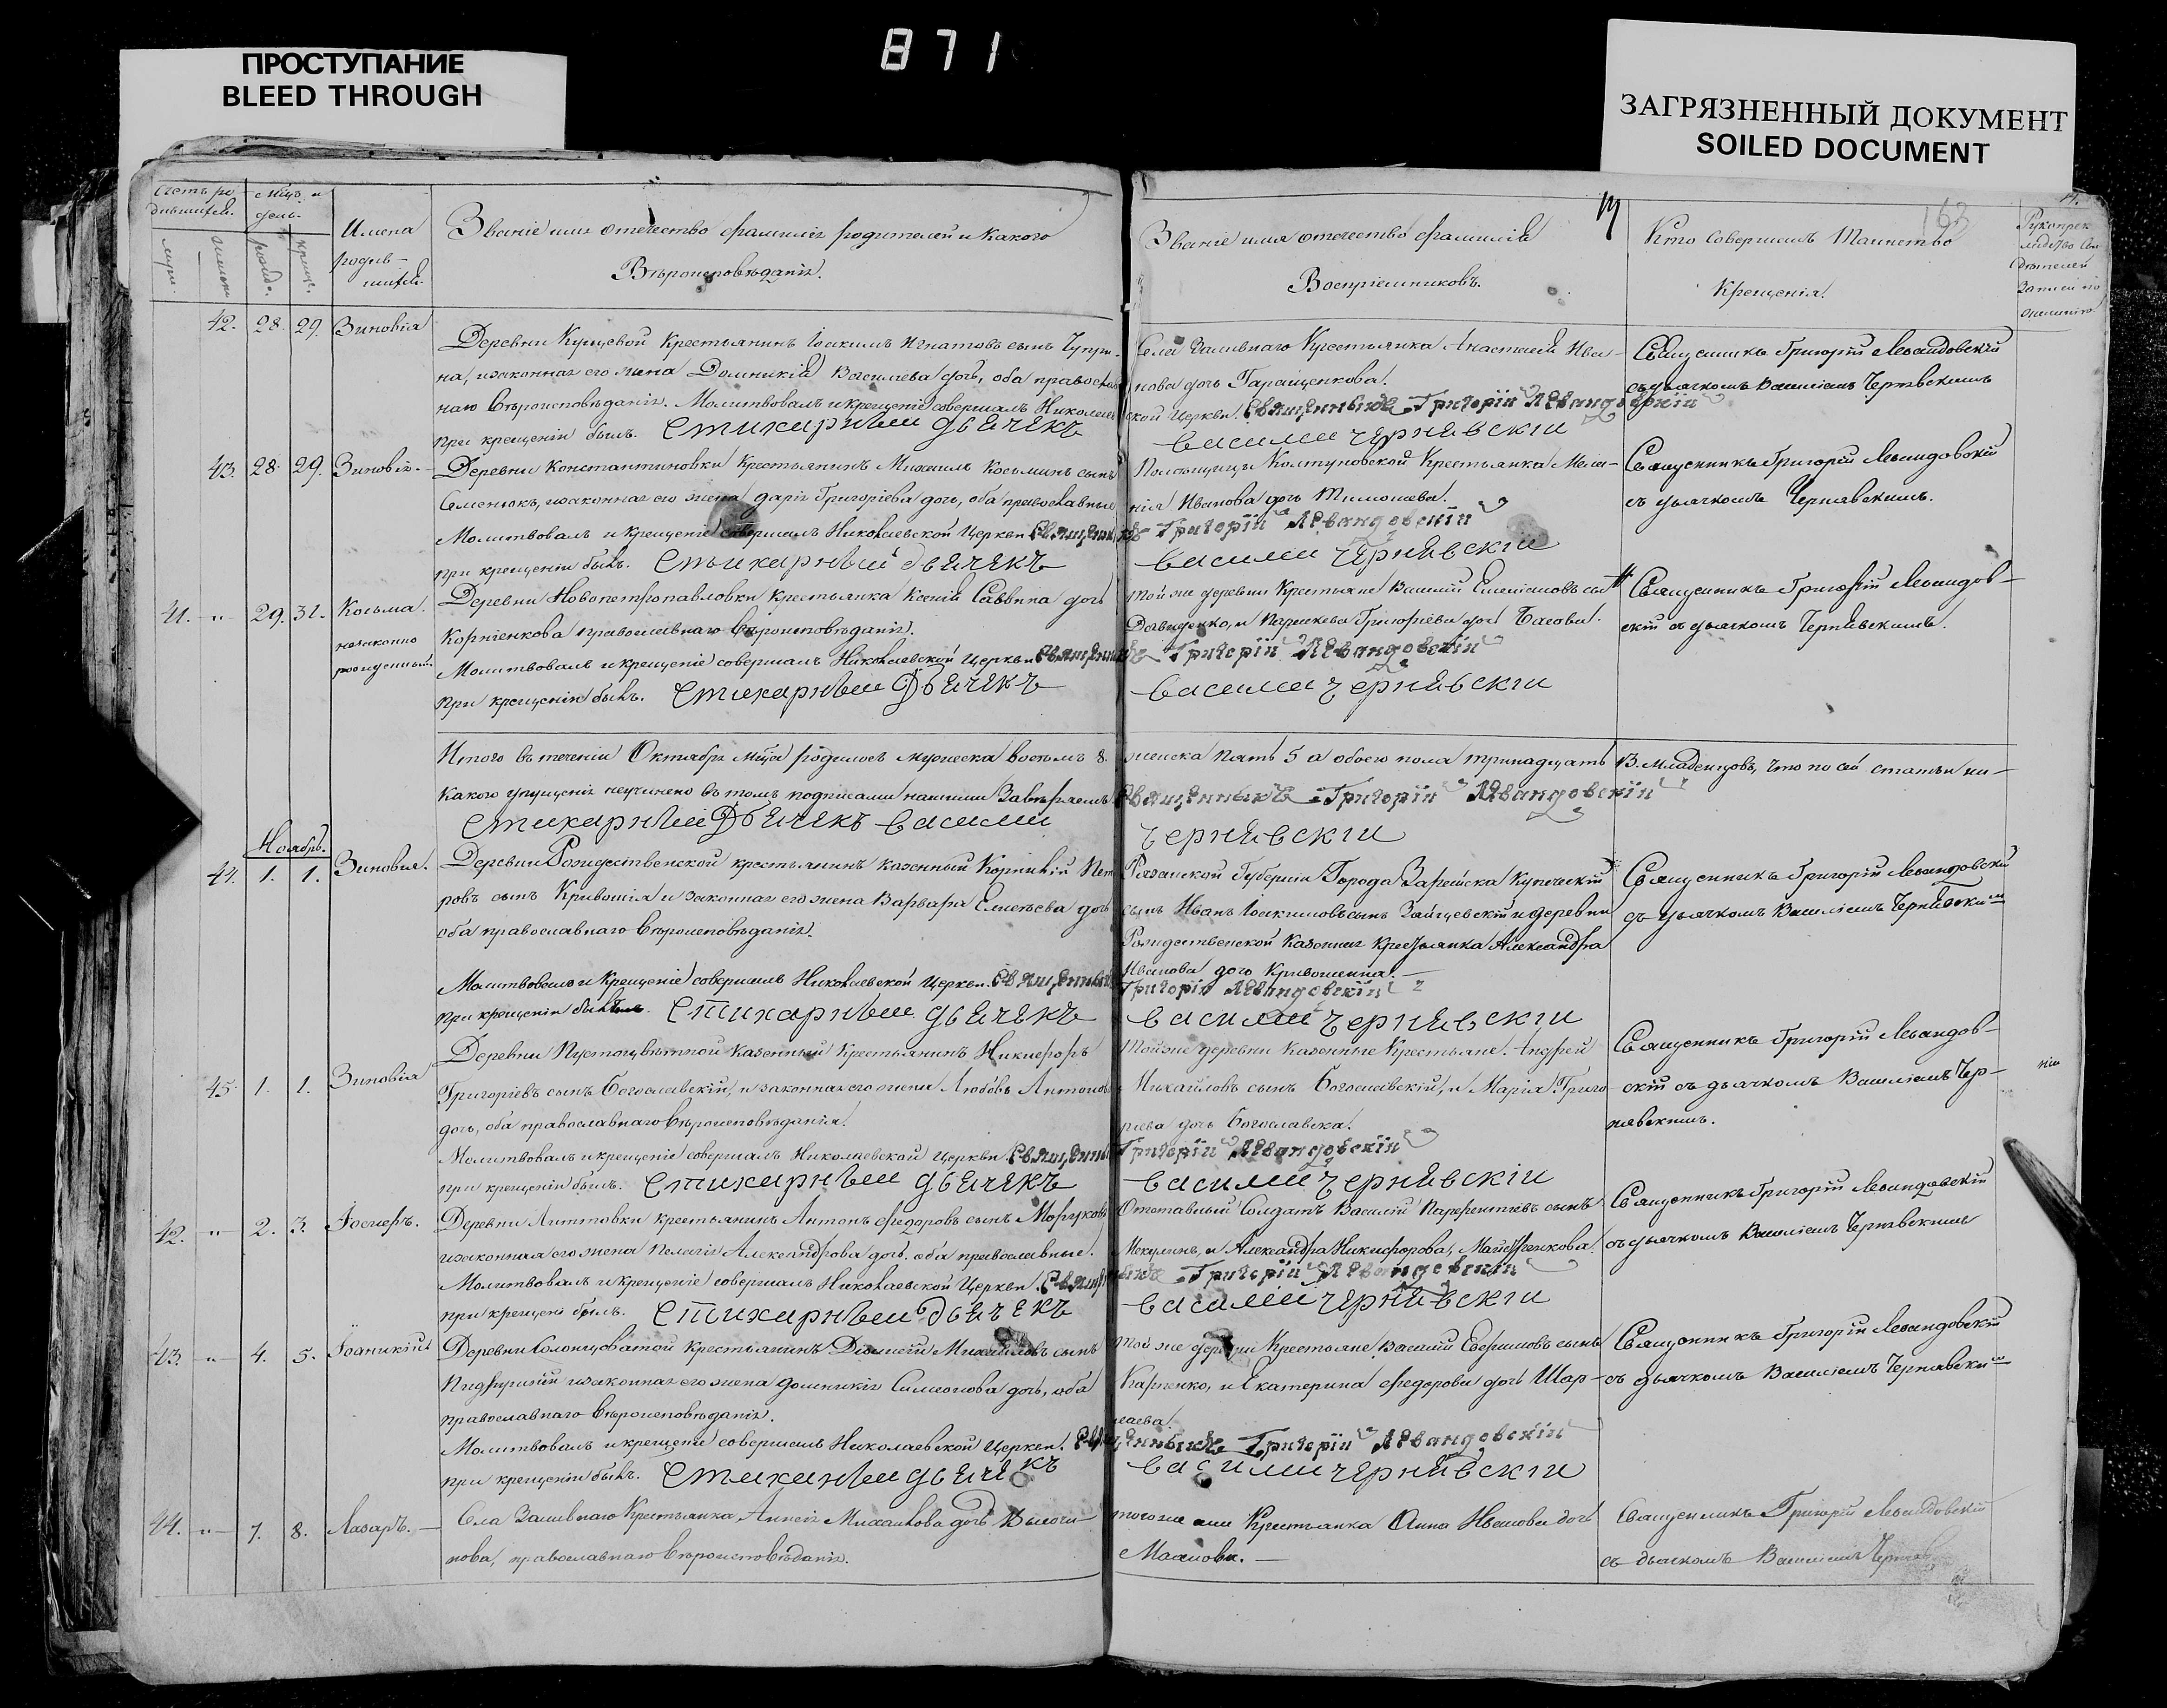 871
ПРОСТУПАНИЕ
BLEED THROUGH
ЗАГРЯЗНЕННЫЙ ДОКУМЕНТ
SOILED DOCUMENT
Имена
родив-
шихся
Званіе имя отечество фамилія родителей и какого
Вѣроисповѣданія.
Званіе имя отечество фамилія
Воспріемниковъ.
Кто совершалъ таинство
Крещенія.
163
42. 28. 29. Зиновія
Деревни Кущевой Крестьянинъ Іоакимъ Игнатовъ сынъ Чупри-
на, и законная его жена Домникія Васильева дочь, оба православ
наго Вѣроисповѣданія. Молитвовалъ и крещеніе совершалъ Николаев
при крещеніи былъ. Стихарный дьячекъ
Села Заливнаго Крестьянка Анастасія Ива-
нова дочь Гаращенкова.
ской Церкви. Священникъ Григорій Левандовскій
Василій Чернявскій
Священникъ Григорій Левандовскій
съ дьячкомъ Василіемъ Чернявскимъ
43. 28. 29. Зиновія.
Деревни Константиновки Крестьянинъ Михаилъ Косьминъ сынъ
Семенюкъ, и законная его жена Дарія Григоріева дочь, оба православные
Молитвовалъ и крещеніе совершалъ Николаевской Церкви Священникъ
при крещеніи былъ. Стихарный дьячекъ
Помѣщицы Колтуновской Крестьянка Мела-
нія Иванова дочь Тимошева.
Григорій Левандовскій
Василій Чернявскій
Священникъ Григорій Левандовскій
съ дьячкомъ Чернявскимъ.
41. -"- 29. 31. Косьма.
незаконно
рожденный.
Деревни Новопетропавловки крестьянка Ксенія Саввина дочь
Корніенкова православнаго Вѣроисповѣданія.
Молитвовалъ и крещеніе совершалъ Николаевской Церкви Священникъ
при крещеніи былъ. Стихарный Дьячекъ
той же деревни Крестьяне Василій Емельяновъ сынъ
Давиденко, и Параскева Григоріева дочь Басова.
Григорій Левандовскій
Василій Чернявскій
Священникъ Григорій Левандов-
скій съ дьячкомъ Чернявскимъ.
Итого въ теченіи Октября мѣсяца родилось мужеска восемь 8.
женска пять 5 а обоего пола тринадцать 13. младенцовъ, что по сей статьи ни-
какого упущенія неучинено въ томъ подписами нашими Завѣряемъ
Священникъ Григорій Левандовскій
Стихарный Дьячекъ Василій
Чернявскій
Ноябрь.
44. 1. 1. Зиновия.
Деревни Рождественской крестьянинъ казенный Корнилій Пет
ровъ сынъ Кривошія и законная его жена Варвара Елисѣева дочь
оба православнаго Вѣроисповѣданія.
Молитвовалъ и Крещеніе совершалъ Николаевской Церкви. Священникъ
при крещеніи былъ. Стихарный дьячекъ
Рязанской Губерніи Города Зарайска Купеческій
сынъ Иванъ Іоакимовъ сынъ Зайцевскій и деревни
Рождественской Казенная Крестьянка Александра
Иванова дочь Кривошеина.
Григорій Левандовскій
Василій Чернявскій
Священникъ Григорій Левандовскій
съ дьячкомъ Василіемъ Чернявским
45. 1. 1. Зиновія
Деревни Пустоцвѣтной казенный Крестьянинъ Никифоръ
Григоріевъ сынъ Богославскій, и законная его жена Любовь Антонова
дочь, оба православнаго Вѣроисповѣданія.
Молитвовалъ и крещеніе совершалъ Николаевской Церкви. Священникъ
при крещеніи былъ. Стихарный дьячекъ
той же деревни казенные Крестьяне. Андрей
Михайловъ сынъ Богославскій, и Марія Григо
риева дочь Богославска.
Григорій Левандовскій
Василій Чернявскій
Священникъ Григорій Левандов-
скій съ дьячкомъ Василіемъ Чер-
нявскимъ.
42. -"- 2. 3. Іосифъ.
крестьянинъ Антонъ Федоровъ сынъ
и законная его жена Пелагія Александрова дочь. оба православные.
Молитвовалъ и крещеніе совершалъ Николаевской Церкви.
при крещеніи былъ. Стихарный дьячекъ
Отставный Солдатъ Василій Парфентіевъ сынъ
и Александра Никифорова,
Григорій Левандовскій
Василій Чернявскій
Священникъ Григорій Левандовскій
съ дьячкомъ Василіемъ Чернявскимъ
43. -"- 4. 5. Іоаникій
Деревни Солонцоватой Крестьянинъ Діонисій Михайловъ сынъ
и законная его жена Домникія Симеонова дочь, оба
православнаго Вѣроисповѣданія.
Молитвовалъ и крещеніе совершалъ Николаевской Церкви.
при крещеніи былъ. Стихарный дьячекъ
той же деревни Крестьяне Василій Ефимовъ сынъ
Карпенко, и Екатерина Федорова дочь Шар-
лаева.
Григорій Левандовскій
Василій Чернявскій
Священникъ Григорій Левандовскій
съ дьячкомъ Василіемъ Чернявским
44. -"- 7. 8. Лазарь.
Села Заливнаго Крестьянка Михайлова дочь
нова, православнаго Вѣроисповѣданія.
того же Крестьянка Анна Иванова дочь
Священникъ Григорій Левандовскій
съ дьячкомъ Василіемъ